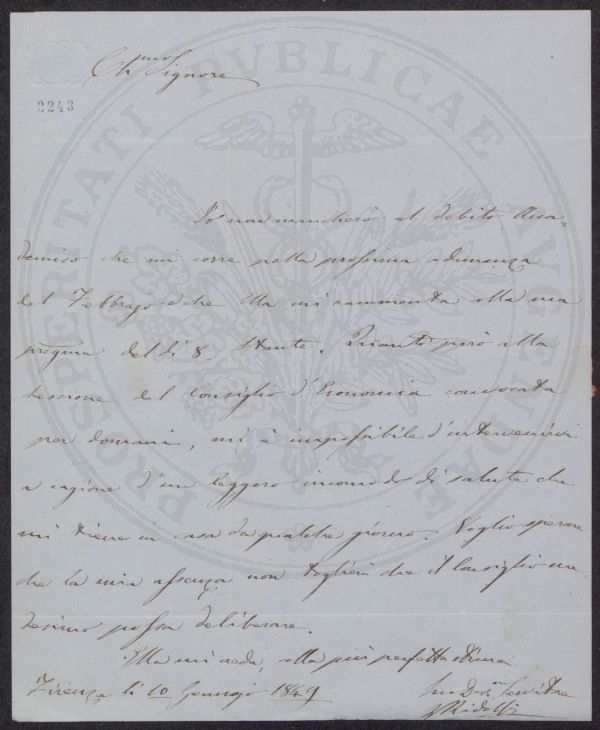 Ch.mo Signore
2243
PROSPERITATI PVBLICAE AVGENDAE
Io non mancherò al debito Acca-
demico che mi corre nella prossima adunanza
del Febbrajo e che Ella mi rammenta colla sua
pregma del dì 8. Stante. Quanto però alla
sessione del Consiglio d'Economia convocata
per domani, mi è impossibile d'intervenirvi
a cagione d'un leggero incomodo di salute che
mi tiene in casa da qualche giorno. Voglio sperare
che la mia assenza non toglierà che il Consiglio me
desimo possa deliberare.
Ella mi creda, colla più perfetta stima
Firenze li 10 Gennajo 1849
Suo Servitore
Ridolfi